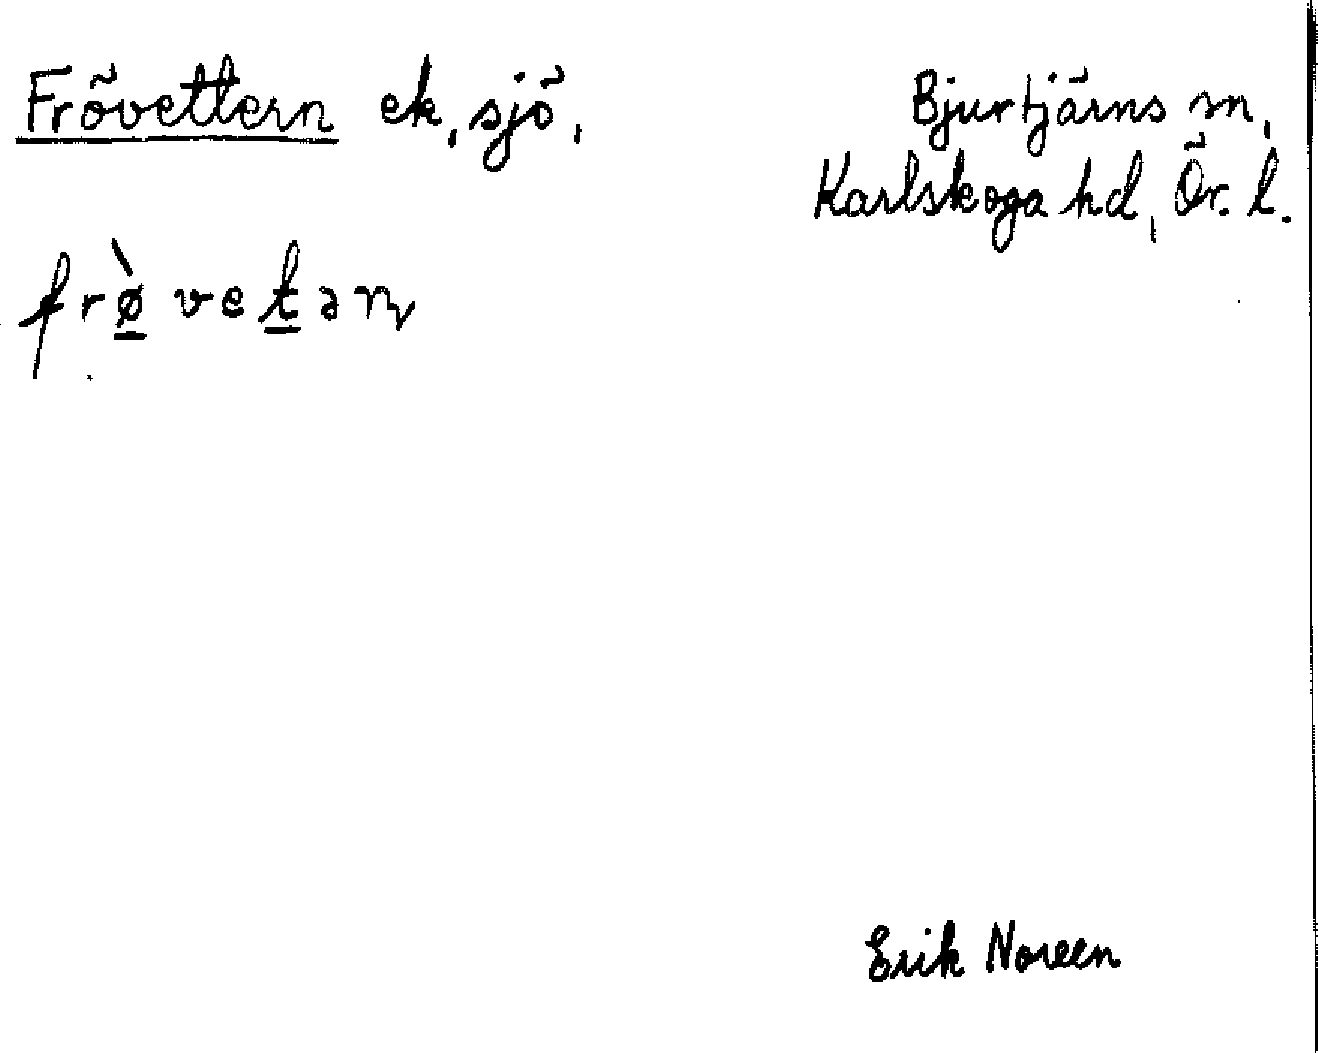 Frövettern ek, sjö,
Bjurtjärns sn,
Karlskoga hd, Ör. l.
frø̀vetəɳ
Erik Noreen